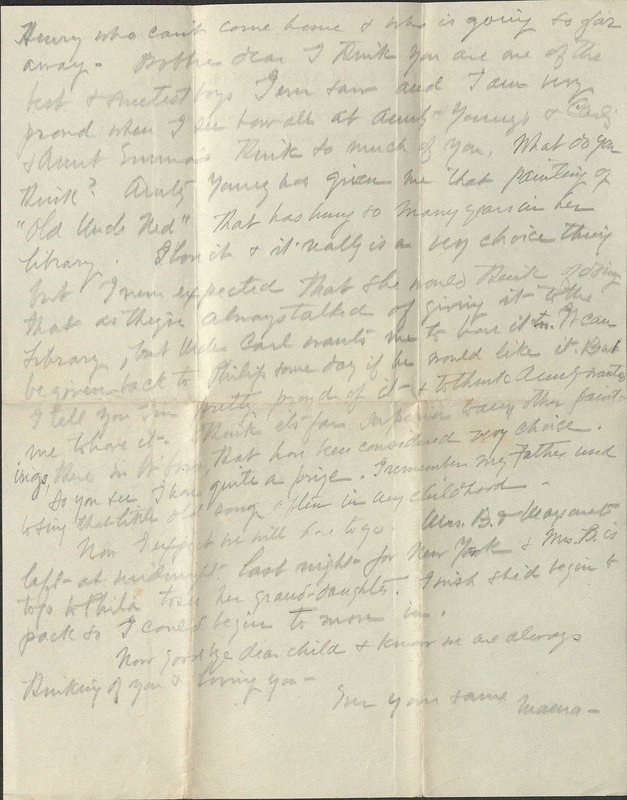 Henry who can't come home & who is going so far
away. Bobbie dear I think you are one of the
best & sweetest boys I ever saw and I am very
proud when I see how all at Aunty Youngs & Carl's
& Aunt Emma's think so much of you. What do you
think? Aunty Young has given me that painting of
"Old Uncle Ned" that has hung so many years in her
library. I love it & it really is a very choice thing
but I never expected that she would think of doing
that as they've always talked of giving it to the
Library, but Uncle Carl wants me to have it. It can
be given back to Philip some day if he would like it. But
I tell you I'm pretty proud of it & to think Aunty wanted
me to have it. I think its far superior to any other paint-
ings, there that have been considered very choice.
So you see I have quite a prize. I remember my Father used
to sing that little old song often in my childhood -
Now I expect we will have to go. Mrs. B. & Margaret
left at midnight last night for New York & Mrs. B. is
to go to Phila to see her grand-daughter. I wish she'd begin to
pack so I could begin to move in.
Now goodbye dear child & know we are always
thinking of you & loving you -
Ever your same Mama -